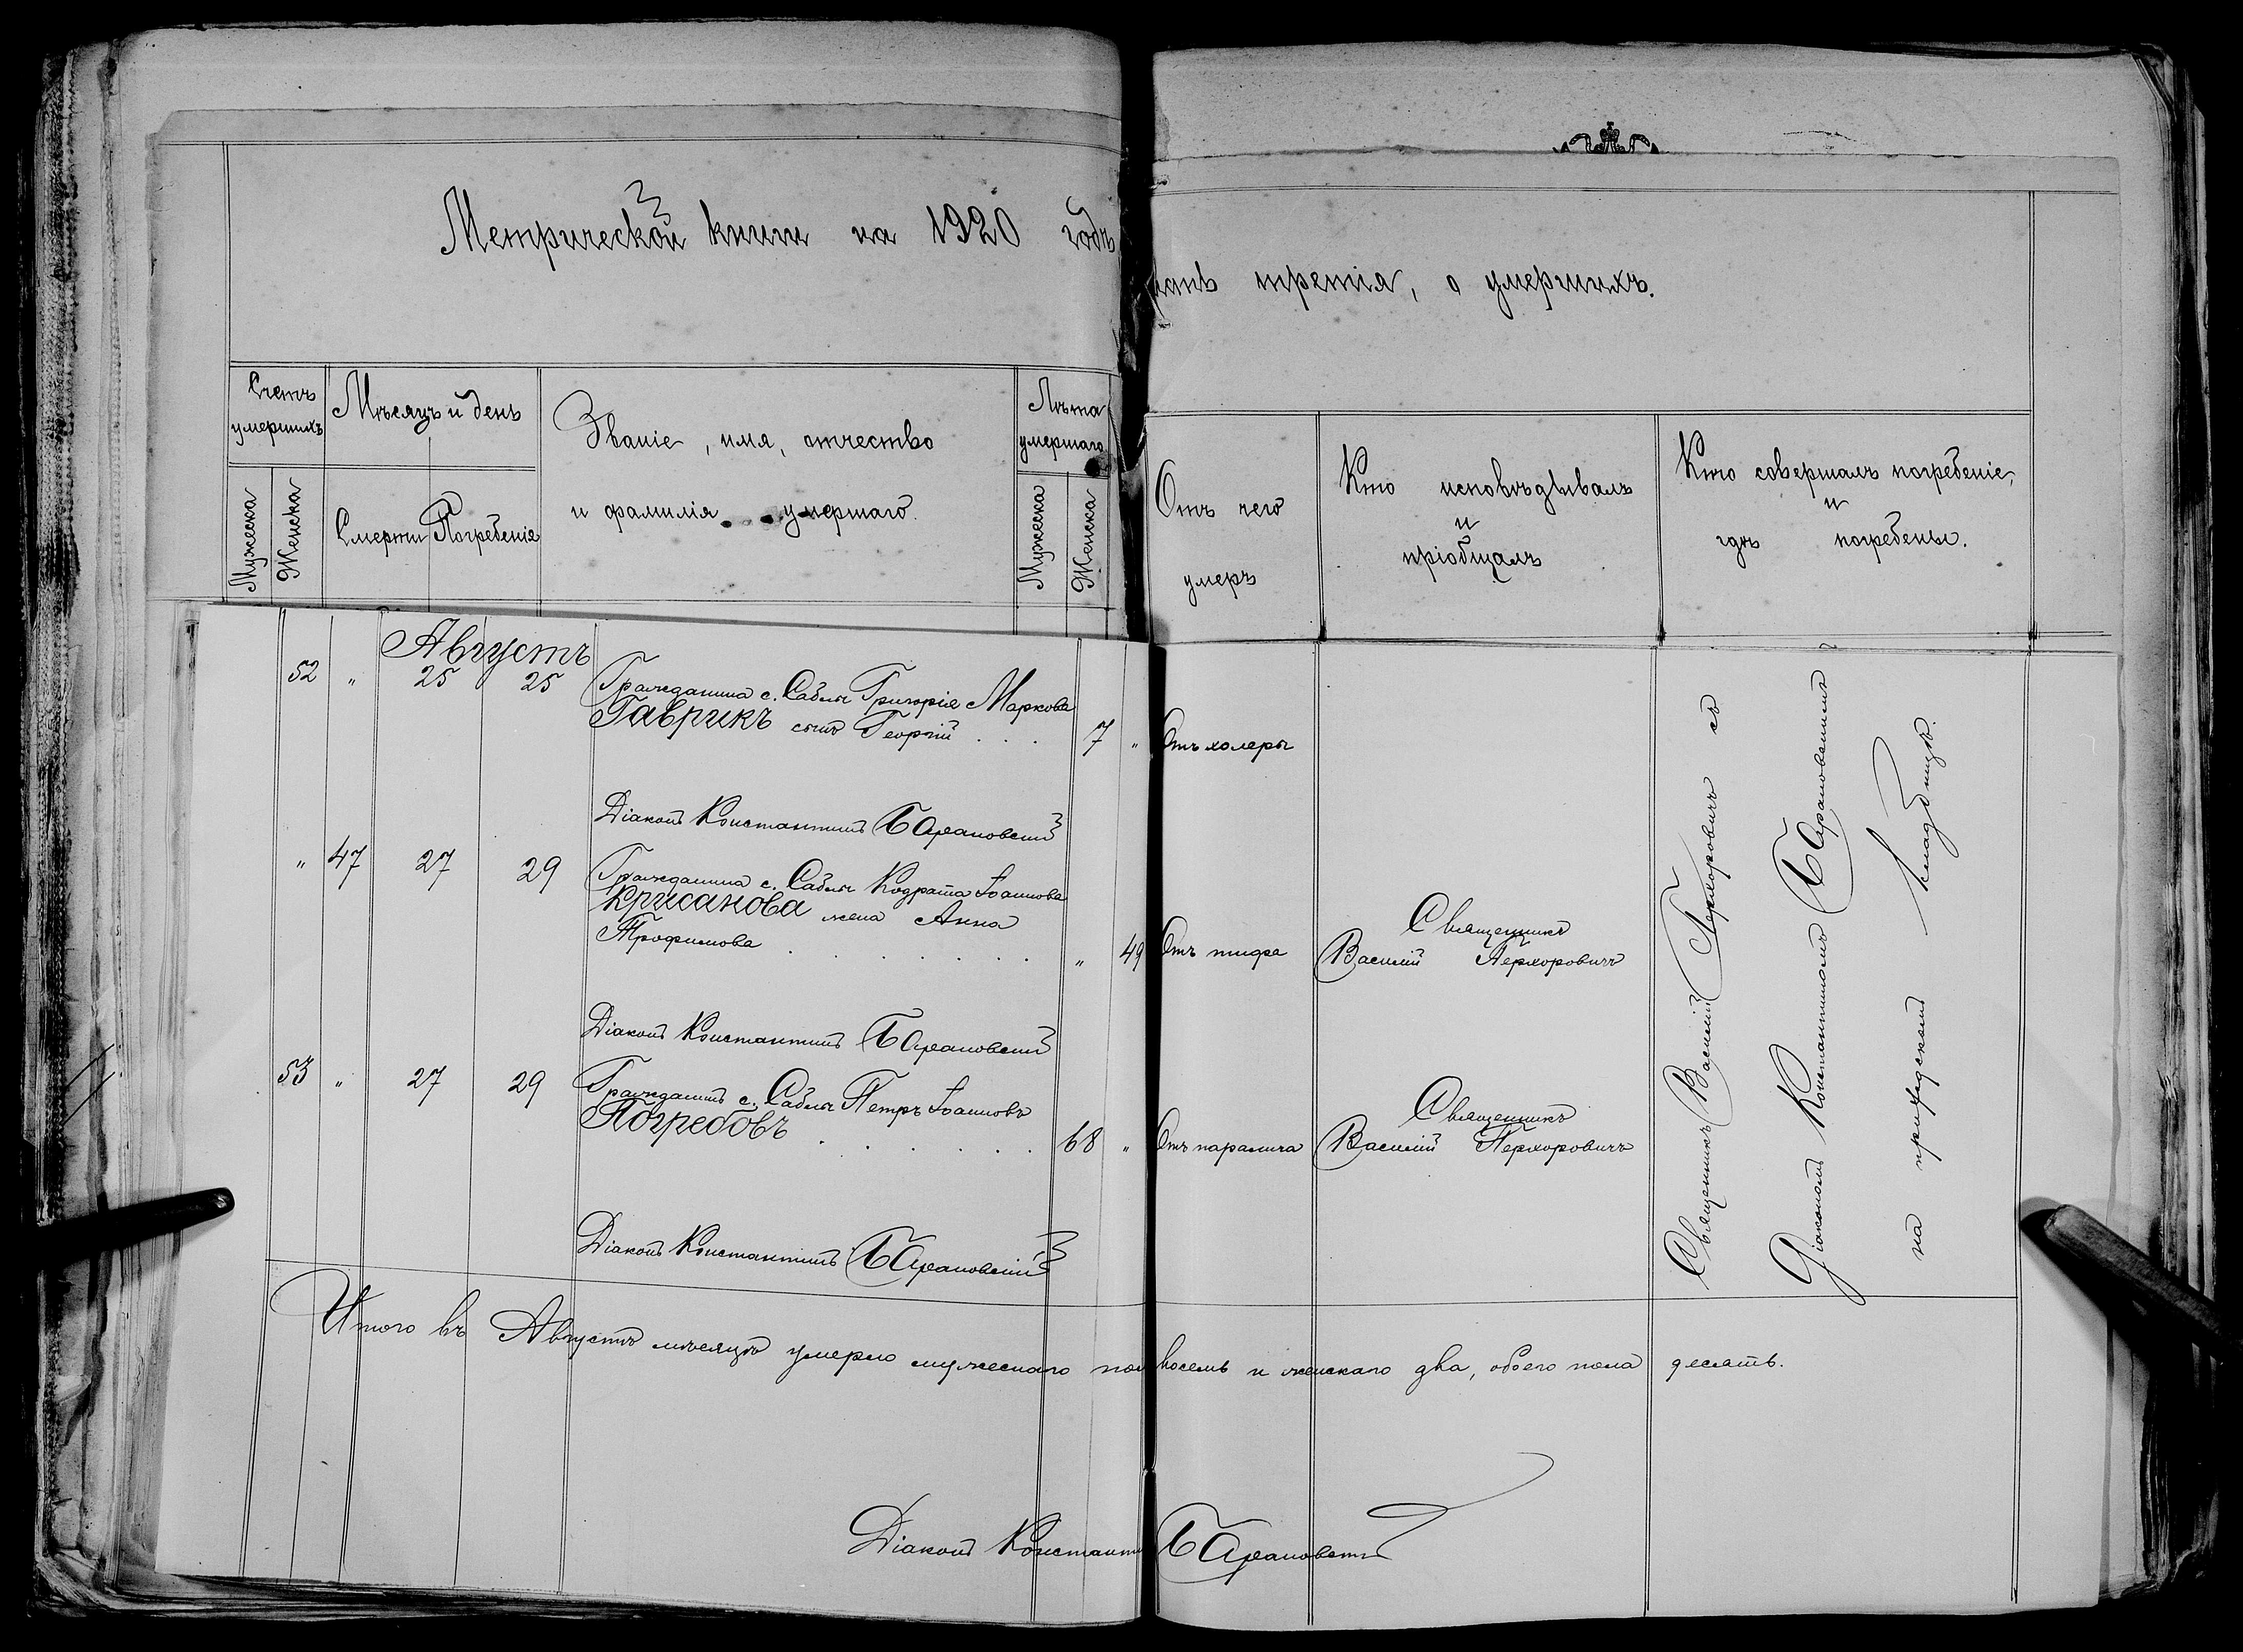 Метрической книги на 1920 годъ
часть третія, о умершихъ.
Счетъ
умершихъ
Мужеска
Женска
Мѣсяцъ и день
Смерти
Погребенія
Званіе, имя, отчество
и фамилія умершаго.
Лѣта
умершаго
Мужеска
Женска
Отъ чего
умеръ
Кто исповѣдывалъ
и
пріобщалъ
Кто совершалъ погребеніе,
и
гдѣ погребены.
Августъ
52 " 25 25 Гражданина с. Саблы Григорія Маркова
Гаврикъ сынъ Георгій . . . 7 " Отъ холеры
Діаконъ Константинъ Барановскій
" 47 27 29 Гражданина с. Саблы Кодрата Іоаннова
Крисанова жена Анна
Трофимова . . . . . . . " 49 Отъ тифа
Священникъ
Василій Перхоровичъ
Діаконъ Константинъ Барановскій
53 " 27 29 Гражданинъ с. Саблы Петръ Іоанновъ
Погребовъ . . . . . . 68 " Отъ паралича
Священникъ
Василій Перхоровичъ
Діаконъ Константинъ Барановскій
Священникъ Василій Перхоровичъ съ
Діакономъ Константиномъ Барановскимъ
на приходскомъ кладбищѣ.
Итого въ Августѣ мѣсяцѣ умерло мужескаго пола восемь и женскаго два, обоего пола десять.
Діаконъ Константинъ Барановскій